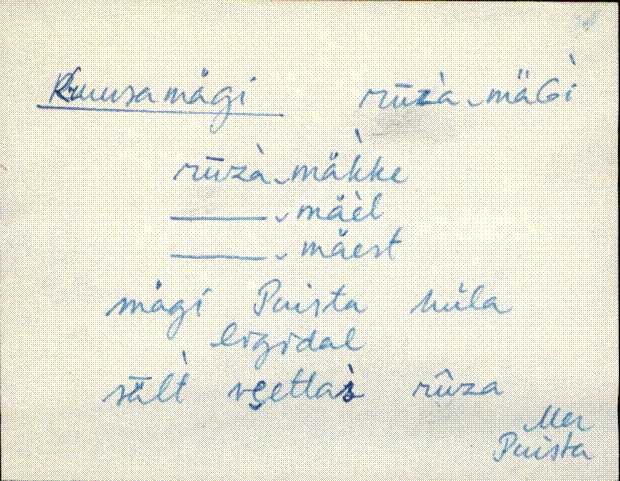 Kruusamägi rūzà-mäGì
rūzà-mäkke
——-mäèl
——-mäest
mägi Puista küla
ligidal
sält vęettaìs rûza
Mer
Puista